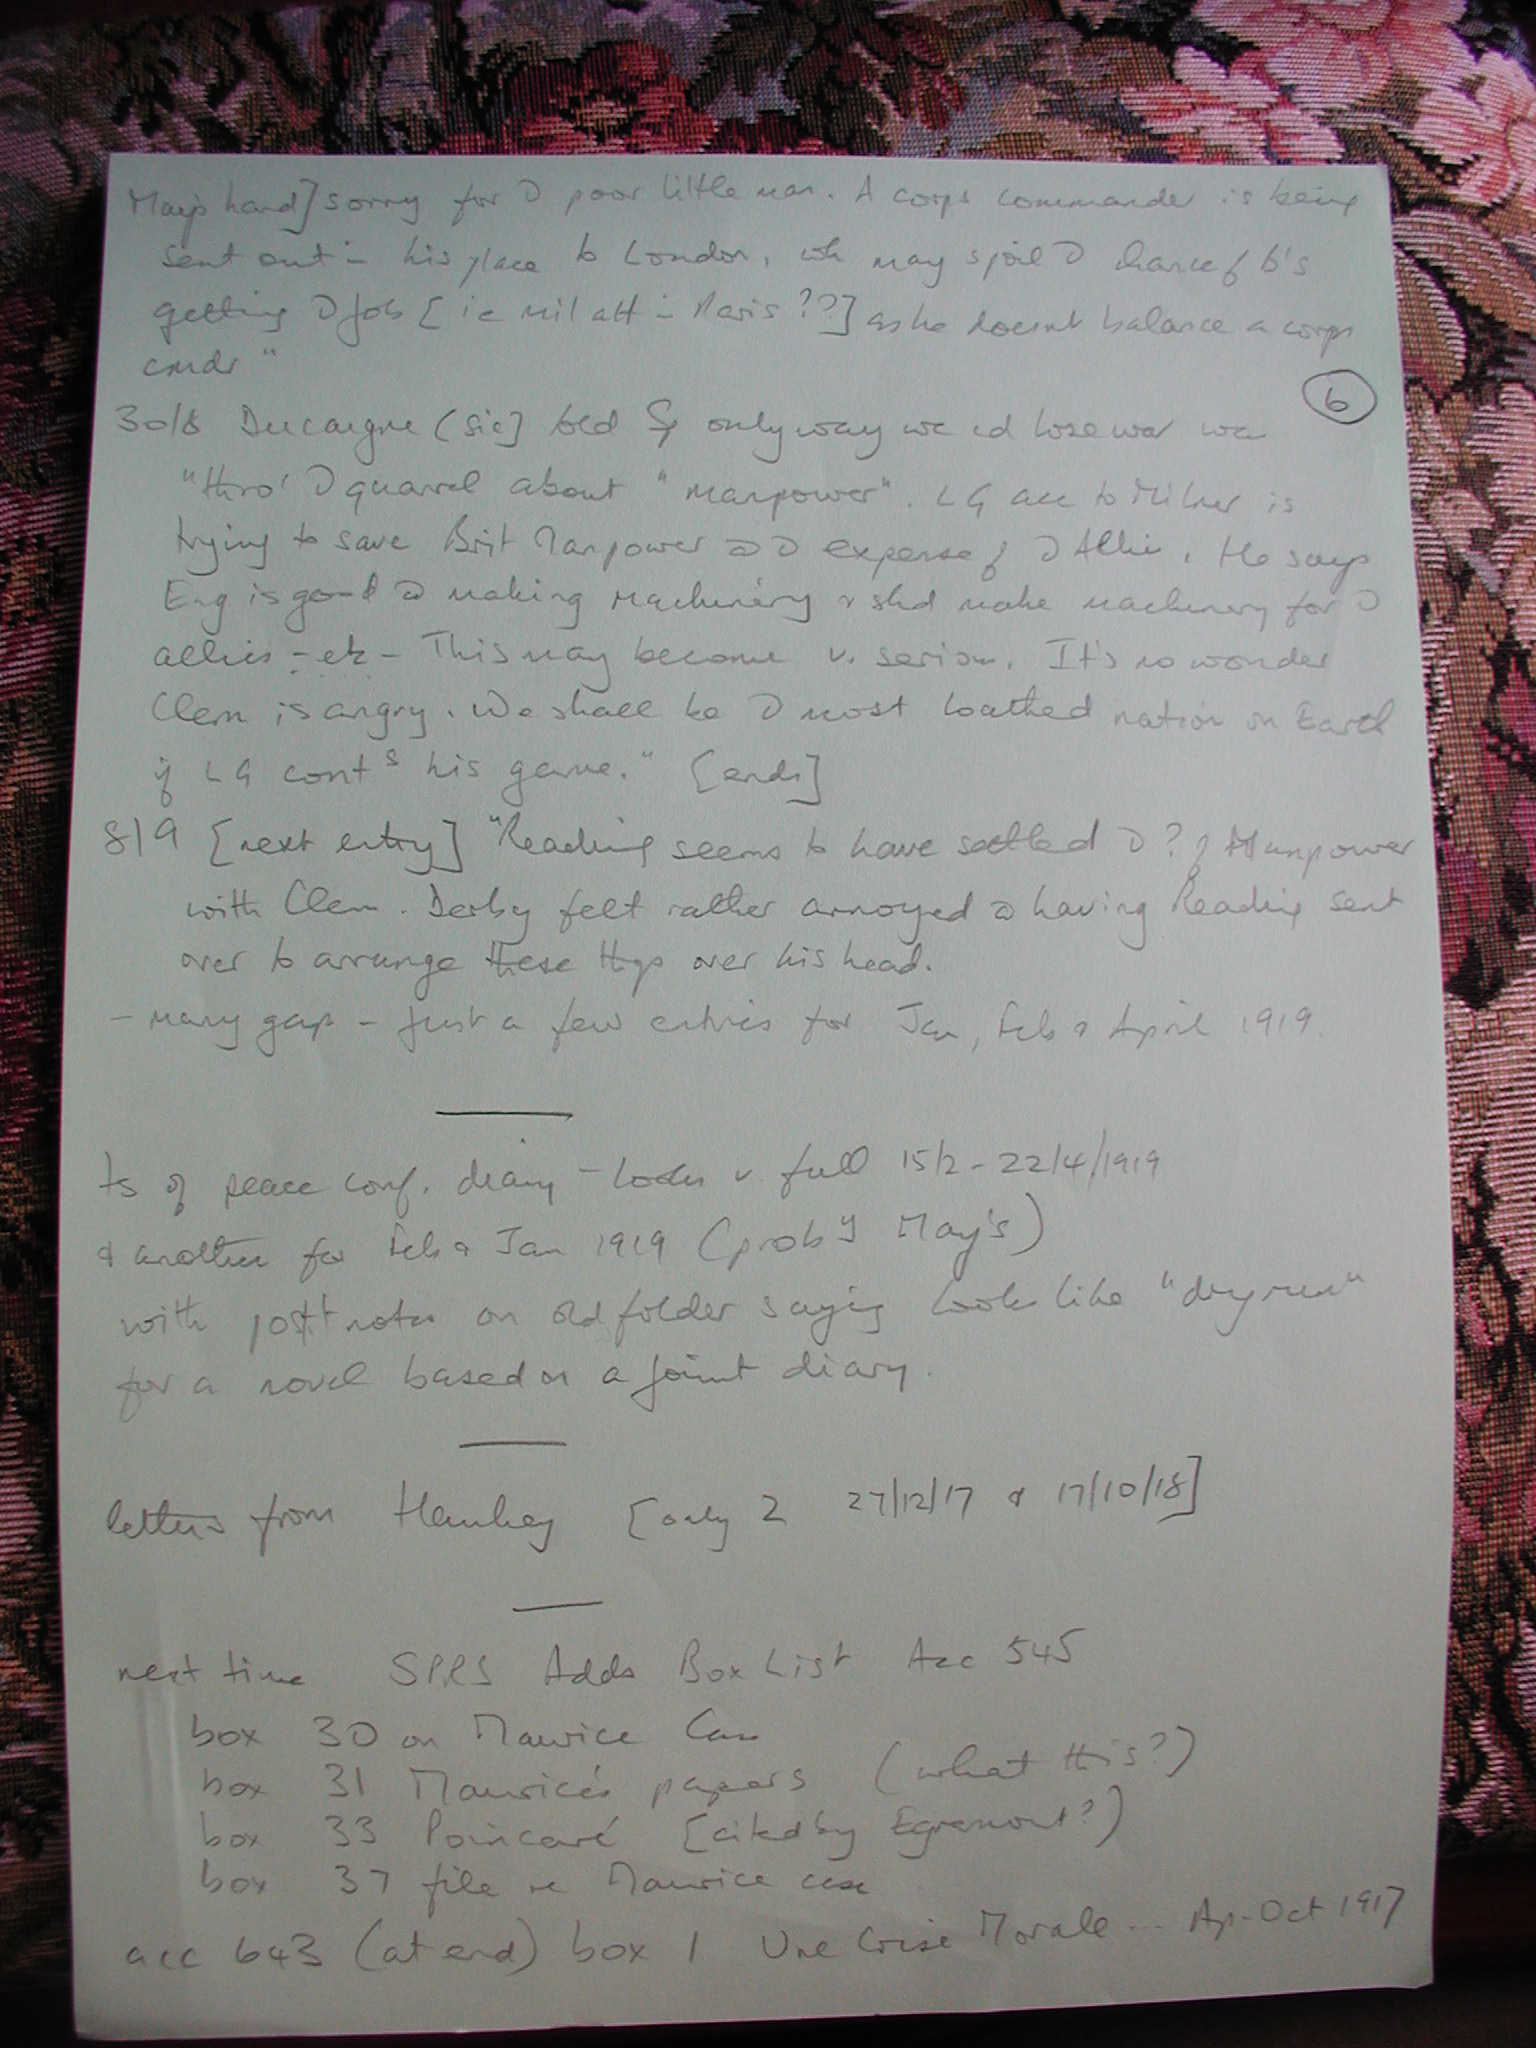 May's hand] sorry for Ɔ poor little man. A corps commander is being
sent out in his place to London, wh may spoil Ɔ chance of 's
getting Ɔ job [ie mil att in Paris ??] as he doesnt balance a corps
cmdr"
6
30/8 Ducaigne (sic] told Sp only way we cd lose war was
"thro' Ɔ quarrel about "manpower". LG acc to Milner is
trying to save Brit Manpower @ Ɔ expense of Ɔ Allies. He says
Eng is good @ making machinery & shd make machinery for Ɔ
allies - etc - This may become v. serious. It's no wonder
Clem is angry. We shall be Ɔ most loathed nation on Earth
if LG conts his game." [ends]
8/9 [next entry] "Reading seems to have settled Ɔ ? of Manpower
with Clem. Derby felt rather annoyed @ having Reading sent
over to arrange these thgs over his head.
- many gaps - just a few entries for Jan, Feb & April 1919.
ts of peace conf. diary - looks v. full 15/2 - 22/4/1919
& another for Feb & Jan 1919 (proby May's)
with postit notes on old folder saying looks like "dry run"
for a novel based on a joint diary.
letters from Hankey [only 2 27/12/17 & 17/10/18]
next time SPRS Adds Box List Acc 545
box 30 on Maurice Case
box 31 Maurice's papers (what this?)
box 33 Poincaré [cited by Egremont?)
box 37 file re Maurice case
acc 643 (at end) box 1 Une Crise Morale ... Ap-Oct 1917